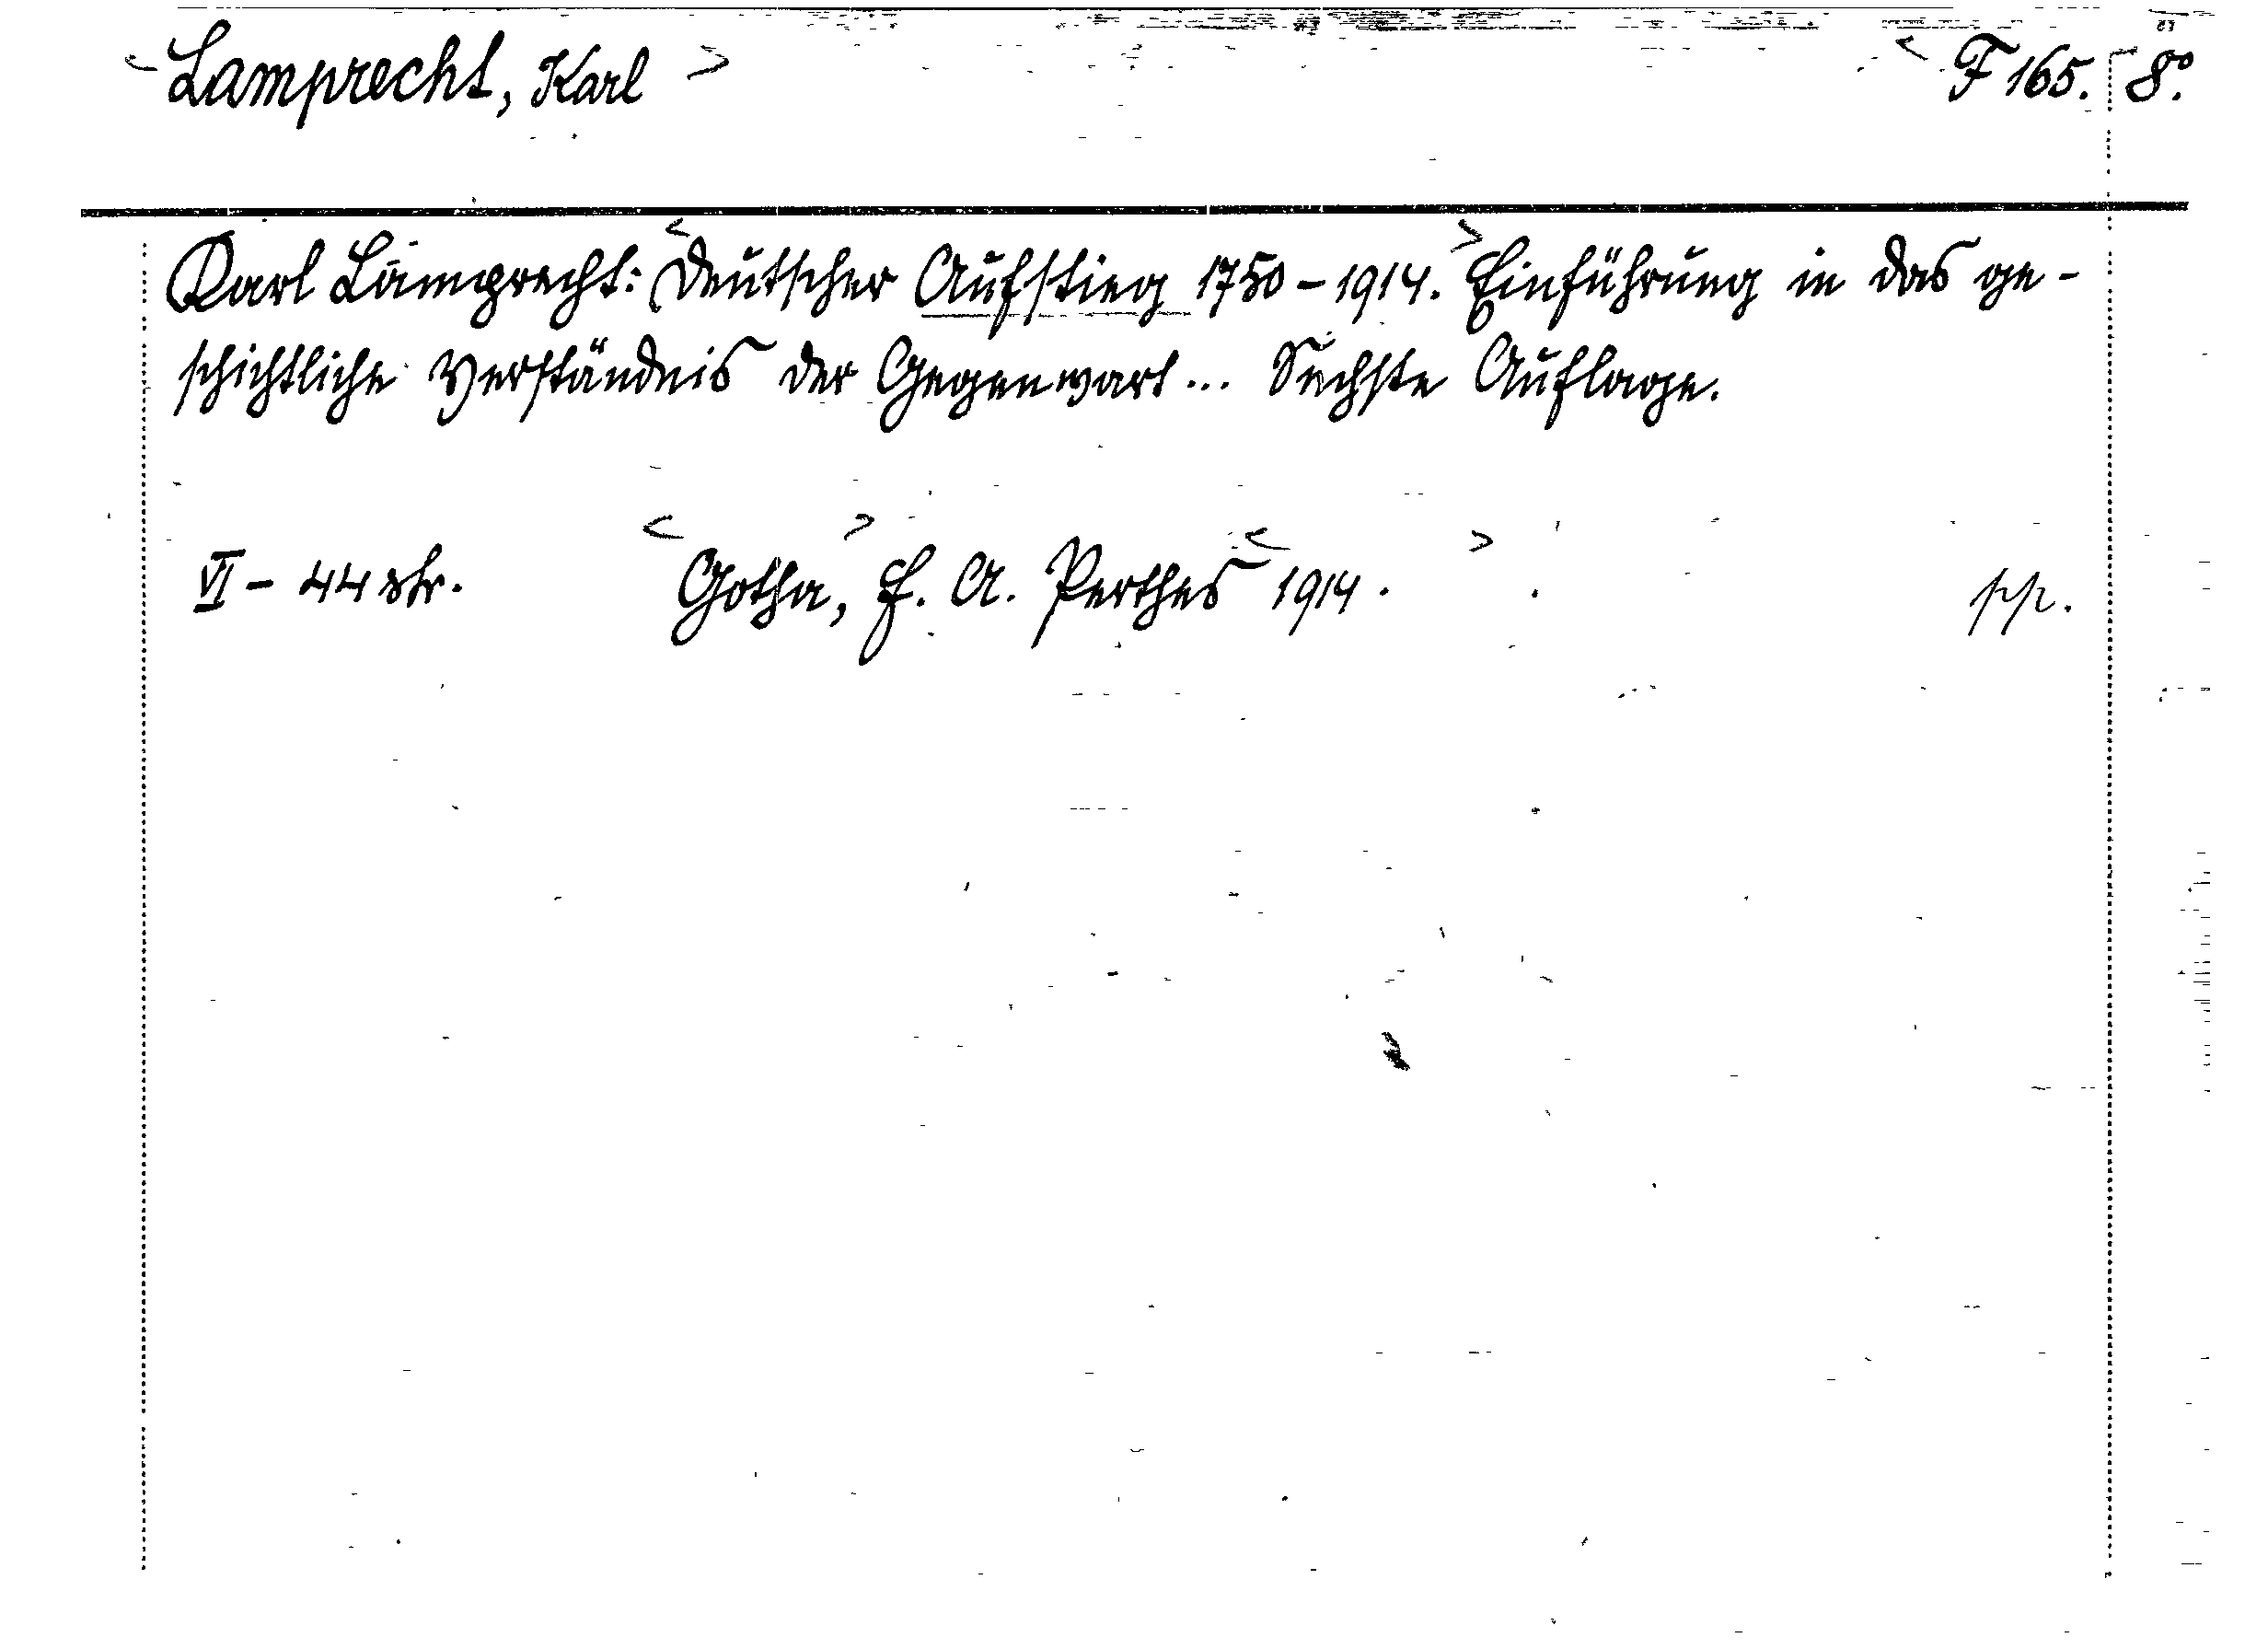 <Lamprecht, Karl> <F 165. 8º.
Karl Lamprecht: <Deutscher Aufstieg 1750-1914.> Einführung in das ge-
schichtliche Verständnis der Gegenwart... Sechste Auflage.
VI - 44 str. <Gotha,> F. A. Perthes <1914.>